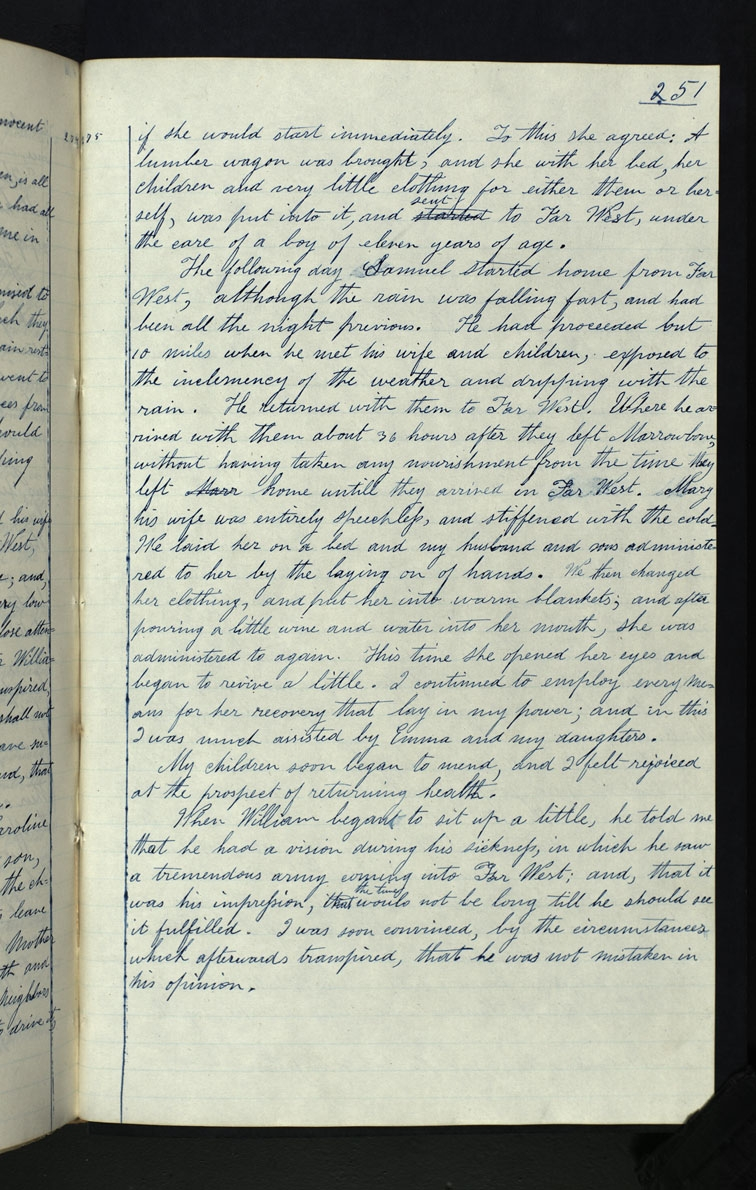 251
if she would start immediately. To this she agreed: A
lumber wagon was brought; and she with her bed, her
children and very little clothing for either them or her=
self, was put into it, and started sent to Far West, under
the care of a boy of eleven years of age.
The following day Samuel started home from Far
West, although the rain was falling fast, and had
been all the night previous. He had proceeded but
10 miles when he met his wife and children, exposed to
the inclemency of the weather and dripping with the
rain. He returned with them to Far West. Where he ar
rived with them about 36 hours after they left Marrowbone,
without having taken any nourishment from the time they
left Marr home untill they arrived in Far West. Mary
his wife was entirely speechless, and stiffened with the cold.
We laid her on a bed and my husband and sons administe=
red to her by the laying on of hands. We then changed
her clothing, and put her into warm blankets; and after
pouring a little wine and water into her mouth, she was
administered to again. This time she opened her eyes and
began to revive a little. I continued to employ every me=
ans for her recovery that lay in my power; and in this
I was much assisted by Emma and my daughters.
My children soon began to mend, and I felt rejoiced
at the prospect of returning health.
When William began to sit up a little, he told me
that he had a vision during his sickness, in which he saw
a tremendous army coming into Far West; and, that it
was his impression, that the time would not be long till he should see
it fulfilled. I was soon convinced, by the circumstances
which afterwards transpired, that he was not mistaken in
his opinion.
nocent
en, is all
had all
me in
mised to
ch they
went to
ces from
would
king
his wife
West,
; and,
ry low
lose atten=
Willia=
uspired,
shall not
ave me
nd, that
aroline
son,
the ch=
leave
Mother
th and
Neighbors
to drive it,